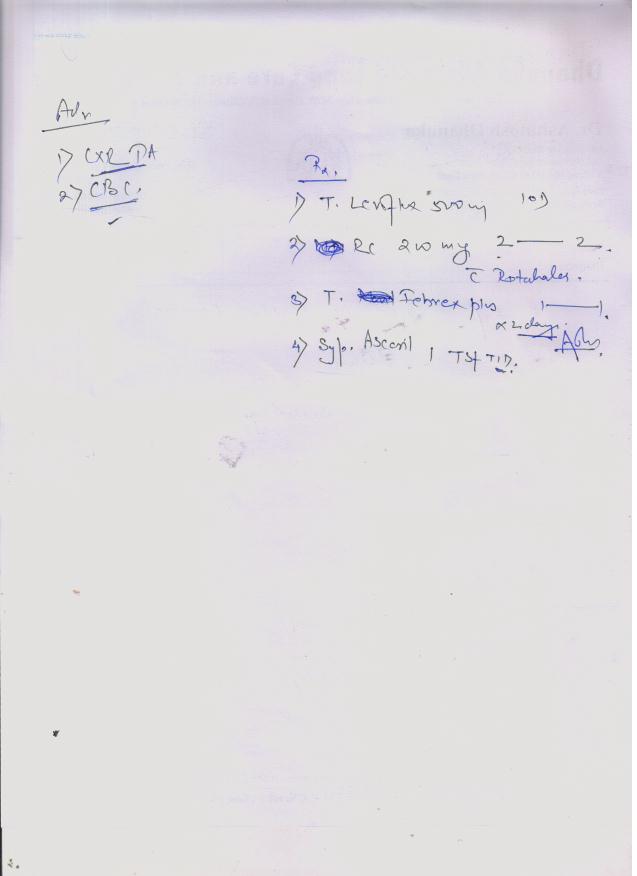 Adv
1) CXR PA
2) CBC.
Rx.
1) T. 500 mg 1 OD
2) RC 200 mg 2 — 2.
c̄ Rotahaler.
3) T. Febrex plus 1 — 1.
x 2 days.
4) Syp. Ascoril 1 TSF TID.